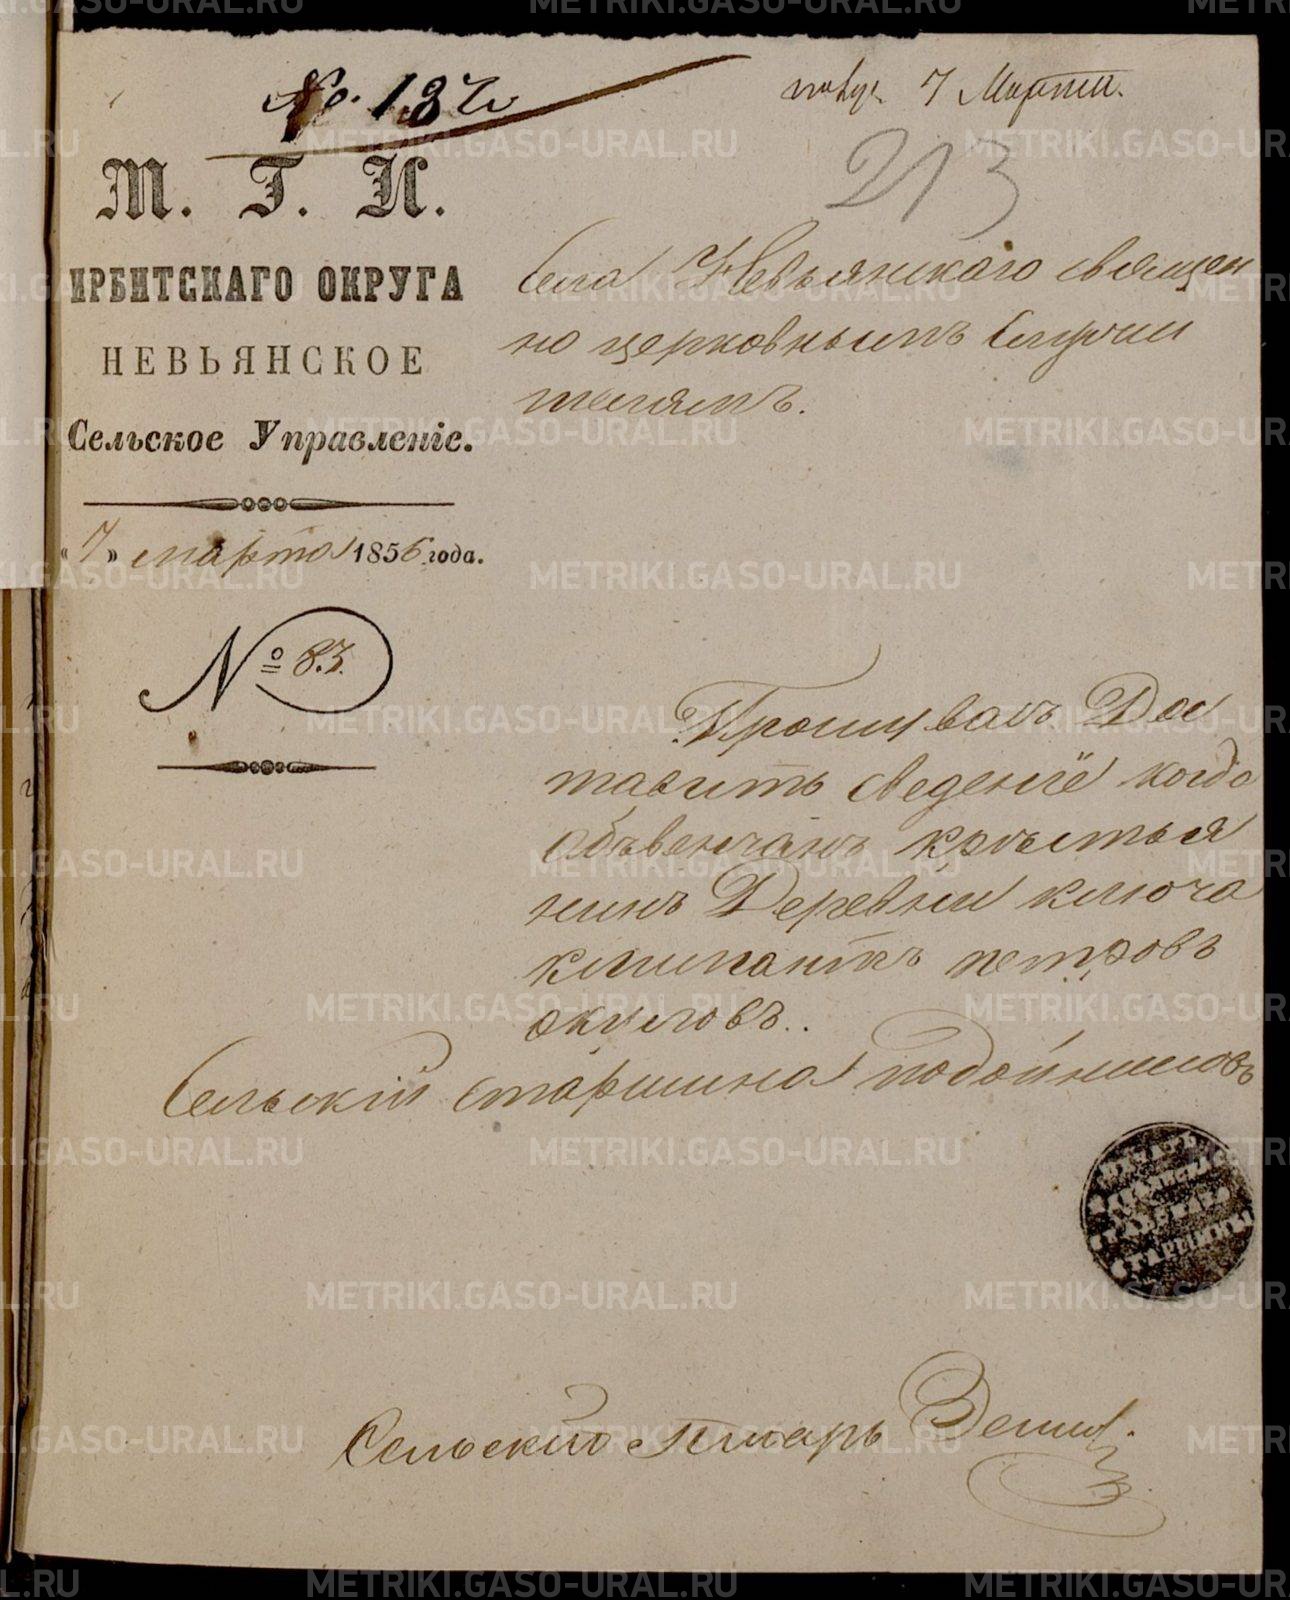 №. 137
получ. 7 Марта.
213
М. Г. И.
ИРБИТСКАГО ОКРУГА
НЕВЬЯНСКОЕ
Сельское Управленіе.
« 7 » марта 1856 года.
№ 83.
Села Невьянскаго священ
но церковнымъ Служи
телямъ.
Прошу васъ Дос
тавить сведеніе когда
обьвенчанъ кресьтья
нинъ Деревни ключа
климантъ петровъ
окуловъ..
Сельскій старшина подойниковъ
ПЕЧАТЬ
СЕЛЬСКАГО
СТАРШИНЫ
Сельскій Писарь
METRIKI.GASO-URAL.RU